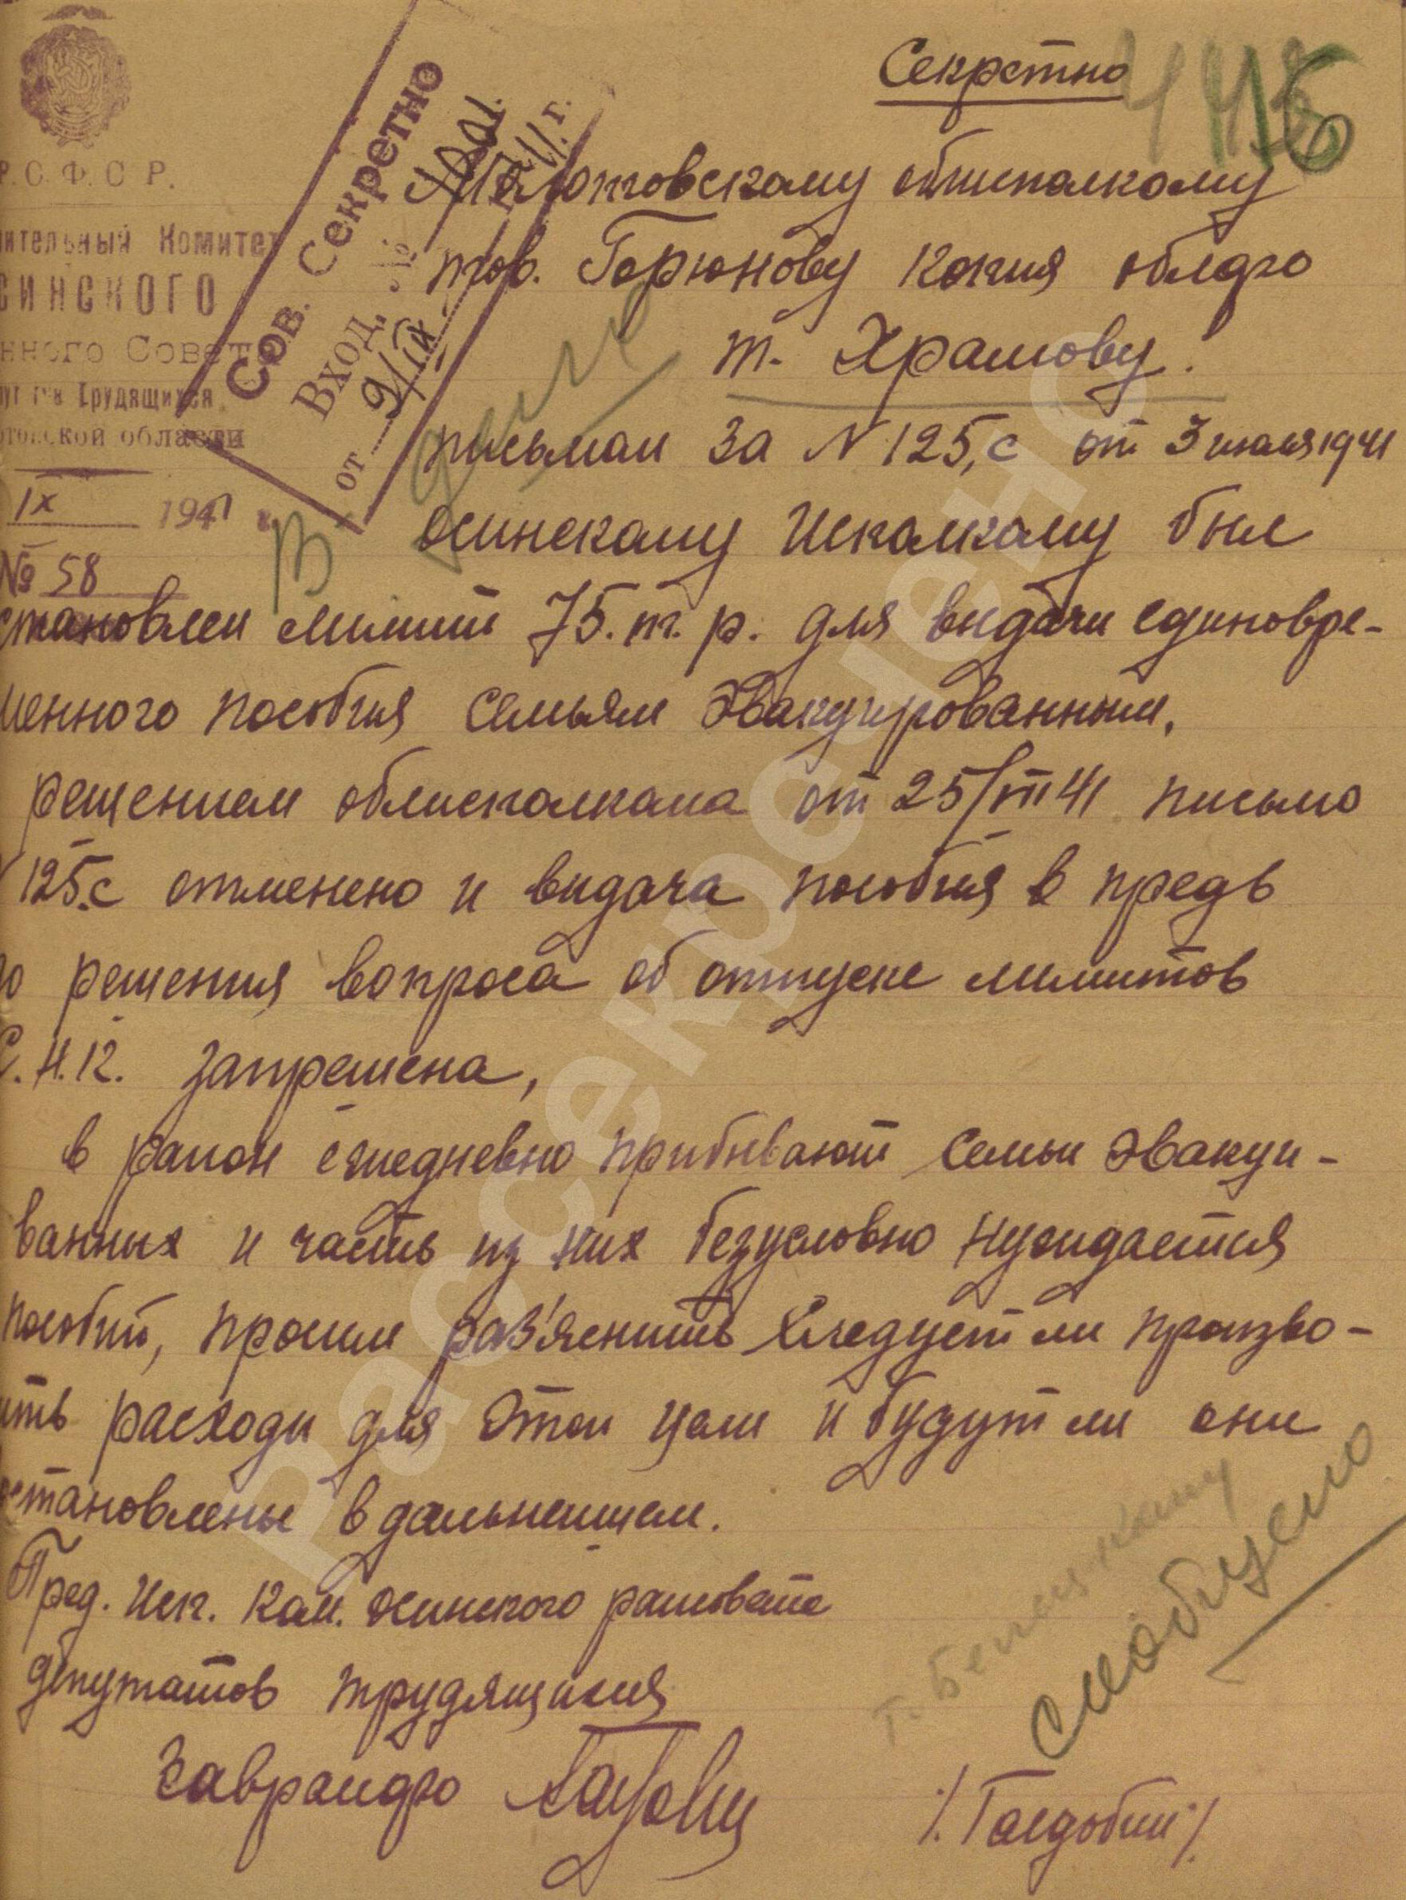 Секретно
116
Р.С.Ф.С.Р.
ительный Комитет
синского
нного Совета
Трудящихся
товской области
IX 1941 г.
№ 58
Сов. Секретно
Вход. №
от 9/IX г.
В дело
Молотовскому облисполкому
тов. Горюнову копия облфо
т. Храмову.
письмом за N 125,с от 3 июля 1941
осинскому исполкому был
становлен лимит 75.т.р. для выдачи единовре-
менного пособия семьям эвакуированным,
решением облисполкома от 25/VII 41 письмо
125.с отменено и выдача пособия в предь
до решения вопроса об отпуске лимитов
С.Н.К. запрещена,
в район ежедневно прибывают семьи эвакуи-
ванных и часть из них безусловно нуждается
пособий, просим раз'яснить следует ли произво-
ить расходы для этой цели и будут ли они
становлены в дальнейшем.
Пред. исп. ком. осинского райсовета
депутатов трудящихся
Заврайфо
т.
сообщено